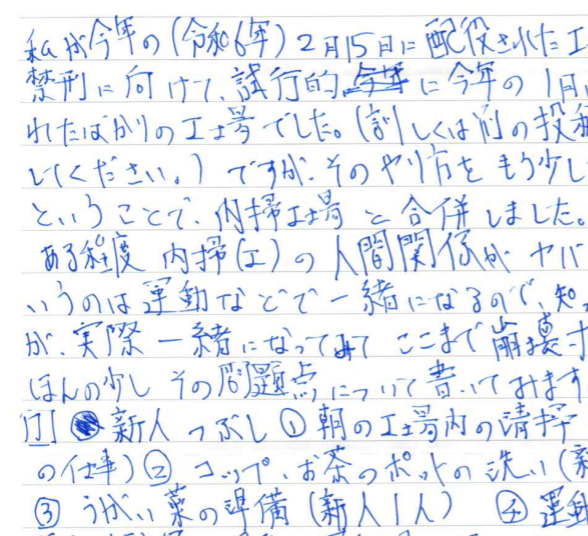 私が今年の(令和6年)2月15日に配役された工
禁刑に向けて、試行的に今年の1月
れたばかりの工場でした。(詳しくは別の投稿
してください。)ですが、そのやり方をもう少し
ということで、内掃工場と合併しました。
ある程度 内掃(工)の人間関係がヤバ
いうのは運動などで一緒になるので、知
が、実際一緒になってみて ここまで崩壊す
ほんの少し その問題点について書いておます
[1] 新人つぶし ① 朝の工場内の清掃
の仕事) ② コップ、お茶のポットの洗い(
③ うがい薬の準備(新人1人) ④ 運動